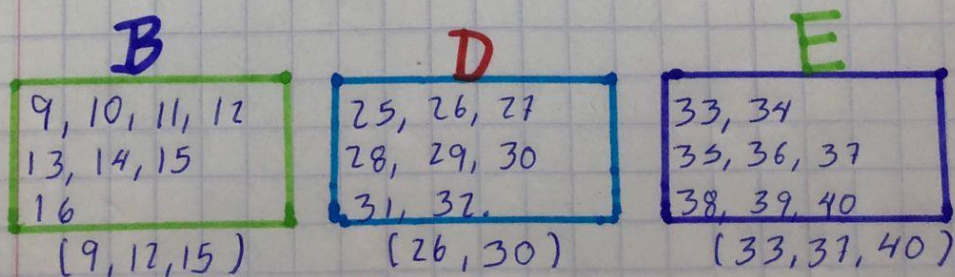 B
9, 10, 11, 12
13, 14, 15
16
(9, 12, 15)
D
25, 26, 27
28, 29, 30
31, 32.
(26, 30)
E
33, 34
35, 36, 37
38, 39, 40
(33, 37, 40)